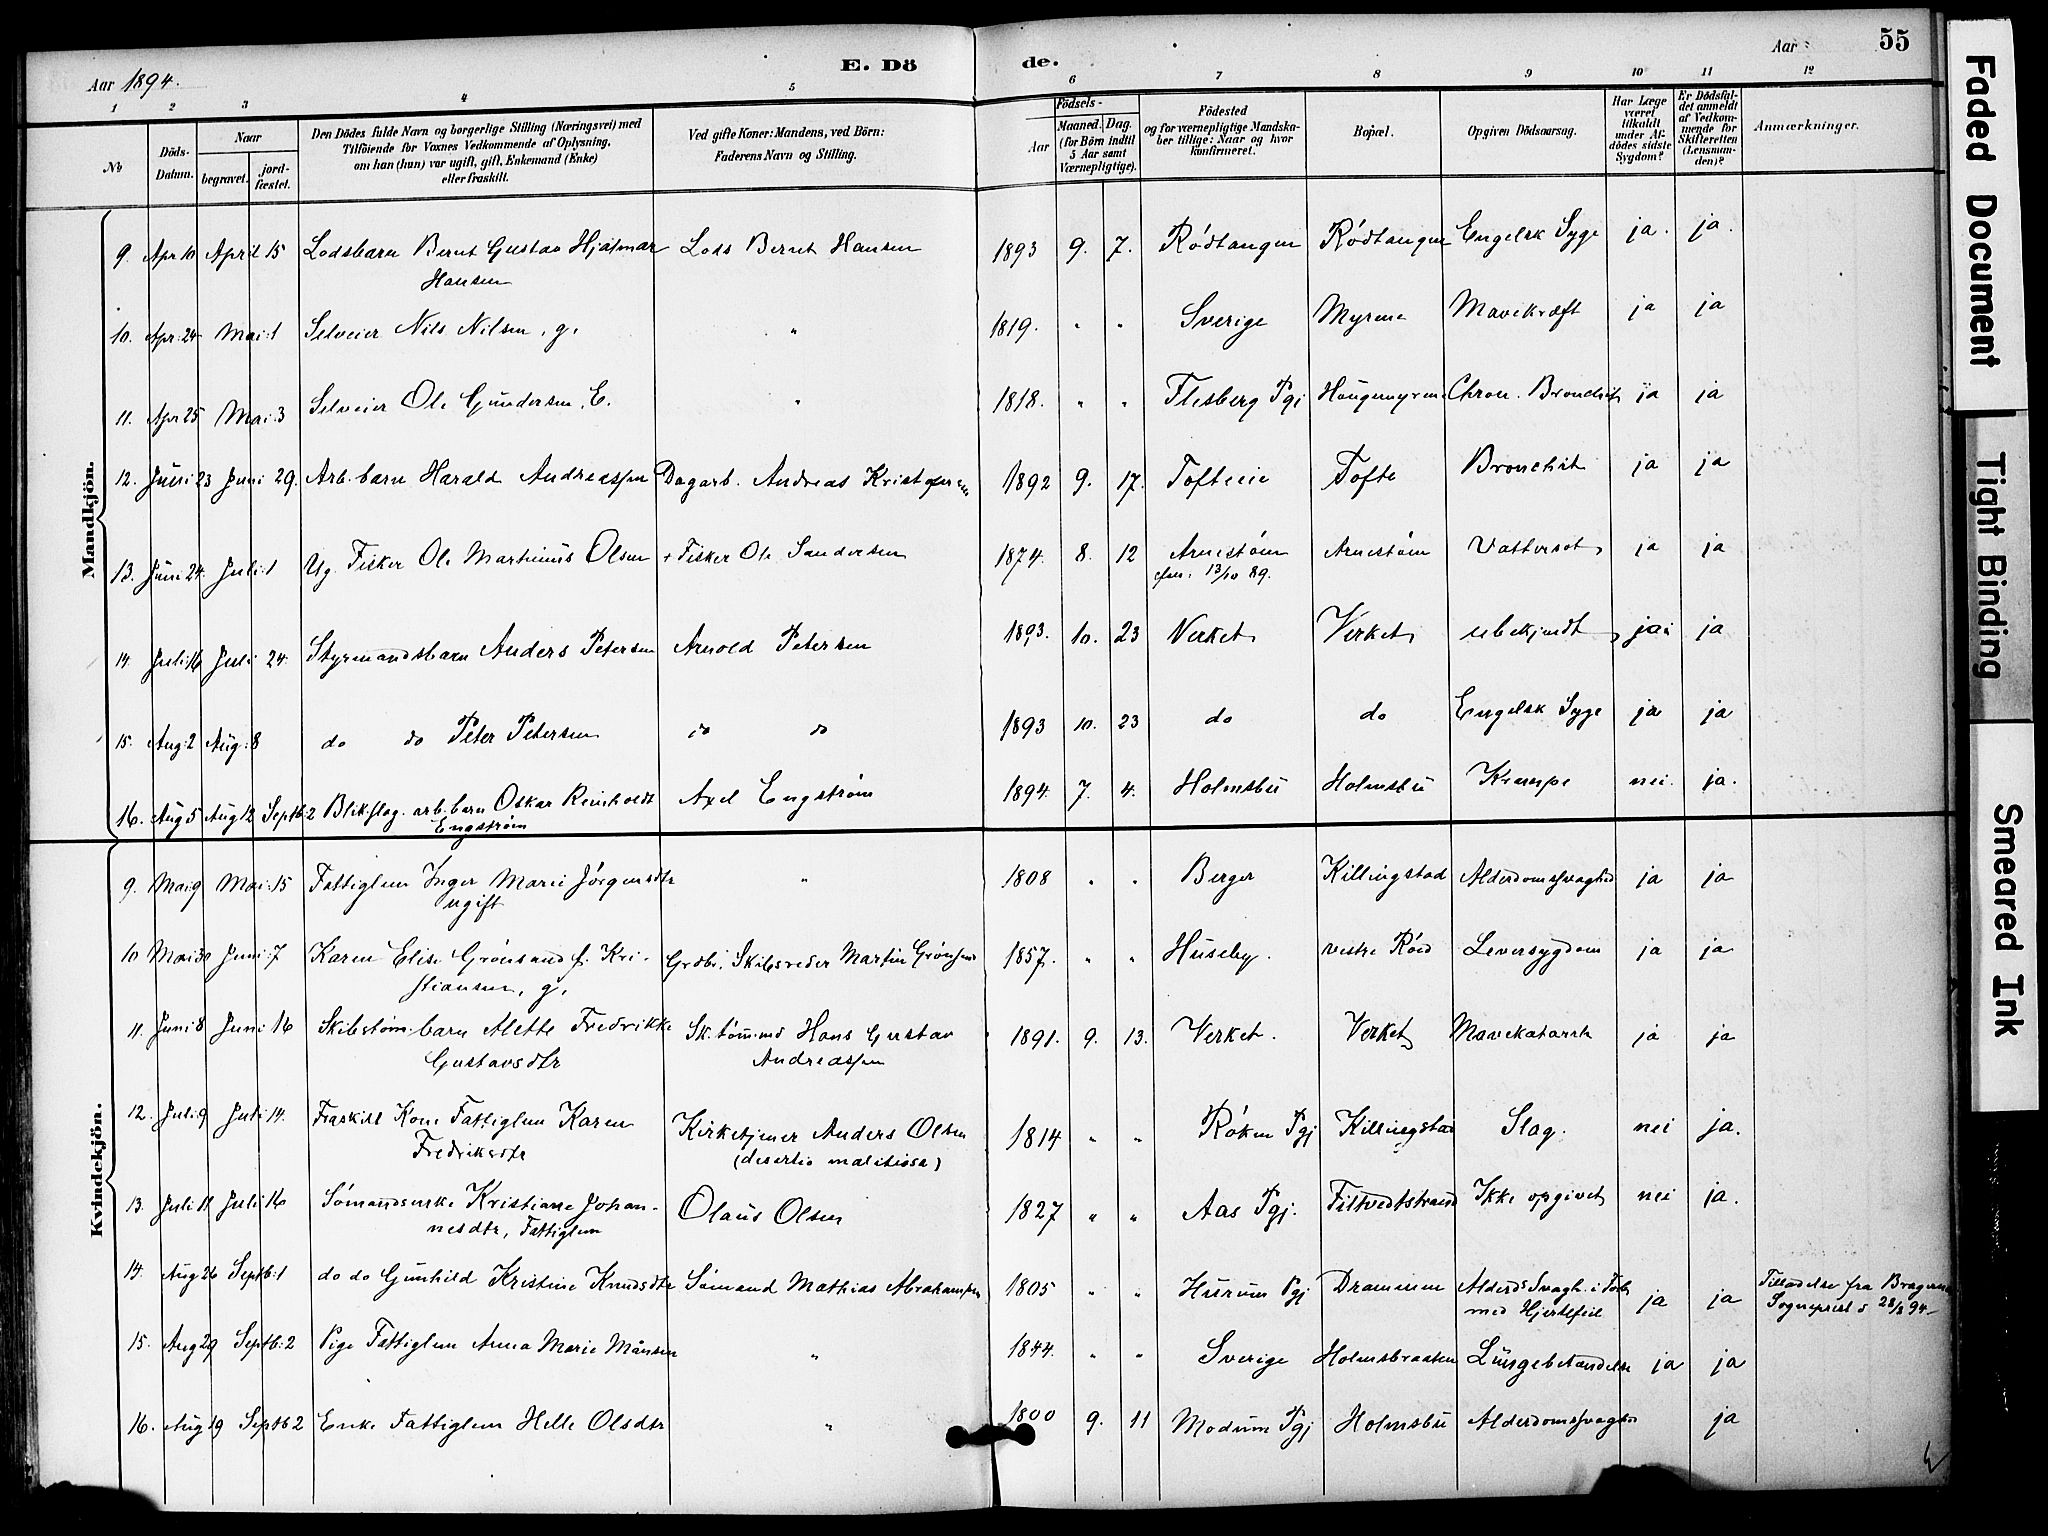 Aar 1894.
E. Dö
de.
Aar
55
1 2 3 4 5 6 7 8 9 10 11 12
No
Döds-Datum.
Naar
begravet.
jord-fæstet.
Den Dödes fulde Navn og borgerlige Stilling (Næringsvei) med
Tilföiende for Voxnes Vedkommende af Oplysning,
om han (hun) var ugift, gift, Enkemand (Enke)
eller fraskilt.
Ved gifte Koner: Mandens, ved Börn:
Faderens Navn og Stilling.
Födsels-
Aar
Maaned. Dag.
(for Börn indtil
5 Aar samt
Værnepligtige).
Födested
og for værnepligtige Mandska-
ber tillige: Naar og hvor
konfirmeret.
Bopæl.
Opgiven Dödsaarsag.
Har Læge
været
tilkaldt
under Af-
dödes sidste
Sygdom?
Er Dödsfal-
det anmeldt
af Vedkom-
mende for
Skifteretten
(Lensman-
den)?
Anmærkninger.
Mandkjön.
9. Apr 10 April 15 Lodsbarn Bernt Gustav Hjalmar Lods Bernt Hansen 1893 9. 7. Rödtangen Rödtangen Engelsk Syge ja. ja.
Hansen
10. Apr: 24 Mai: 1 Selveier Nils Nilsen, g. " 1819. " " Sverige Myrene Mavekræft ja ja
11. Apr 25 Mai: 3 Selveier Ole Gundersen, E. " 1818. " " Flesberg Pgj Haugemyrene Chron. Bronchit ja ja
12. Juni 23 Juni 29. Arb. barn Harald Andreassen Dagarb. Andreas Kristofersen 1892 9. 17. Tofteeie Tofte Bronchit ja ja
13. Juni 24. Juli: 1 Ug. Fisker Ole Martinius Olsen + Fisker Ole Sandersen 1874. 8. 12 Arnestøm Arnestøm Vattersot ja ja
13/10 89.
14. Juli: 16 Juli 24. Styrmandsbarn Anders Petersen Arnold Petersen 1893. 10. 23 Verket Verket ubekjendt ja ja
15. Aug: 2 Aug: 8 do do Peter Petersen do do 1893 10. 23 do do Engelsk Syge ja ja
16. Aug 5 Aug 12 Septb 2 Blikslag. arb. barn Oskar Reinholdt Axel Engstrøm 1894. 7. 4. Holmsbu Holmsbu Krampe nei. ja.
Engstrøm
Kvindekjön.
9. Mai 9 Mai: 15 Fattiglem Inger Marie Jörgensdtr " 1808 " " Berger Killingstad Alderdomssvaghed ja ja
ugift
10 Mai 30 Juni: 7 Karen Elise Grönsand f. Kri- Grdbr. Skibsreder Martin Grönsand 1857. " " Huseby. vestre Röed Leversygdom ja ja
stiansen, g.
11. Juni 8 Juni 16 Skibstøm. barn Alette Fredrikke Sk. tømmd Hans Gustav 1891. 9. 13. Verket. Verket Mavekatarrh ja ja
Gustavsdtr Andreassen
12. Juli: 9 Juli: 14. Fraskilt Kone Fattiglem Karen Kirketjener Anders Olsen 1814 " " Röken Pgj Killingstad Slag. nei ja.
Fredriksdtr (desertio malitiosa)
13. Juli 11 Juli: 16 Sömandsenke Kristiane Johan- Olaus Olsen 1827 " " Aas Pgj. Filtvedtstrand Ikke opgivet nei ja.
nesdtr, Fattiglem
14. Aug 26 Septb: 1 do do Gunhild Kristine Knudsdtr Sømand Mathias Abrahamsen 1805 " " Hurum Pgj Drammen Alderds Svagh. i Forb. ja ja Tilladelse fra Bragernes
med Hjertefeil Sogneprest d 28/8 94
15. Aug 29 Septb: 2 Pige Fattiglem Anna Marie Månsen " 1844. " " Sverige Holmsbraaten Lungebetændelse ja ja
16. Aug 19 Septb 2 Enke Fattiglem Helle Olsdtr " 1800 9. 11 Modum Pgj Holmsbu Alderdomssvaghed ja
Faded Document
Tight Binding
Smeared Ink